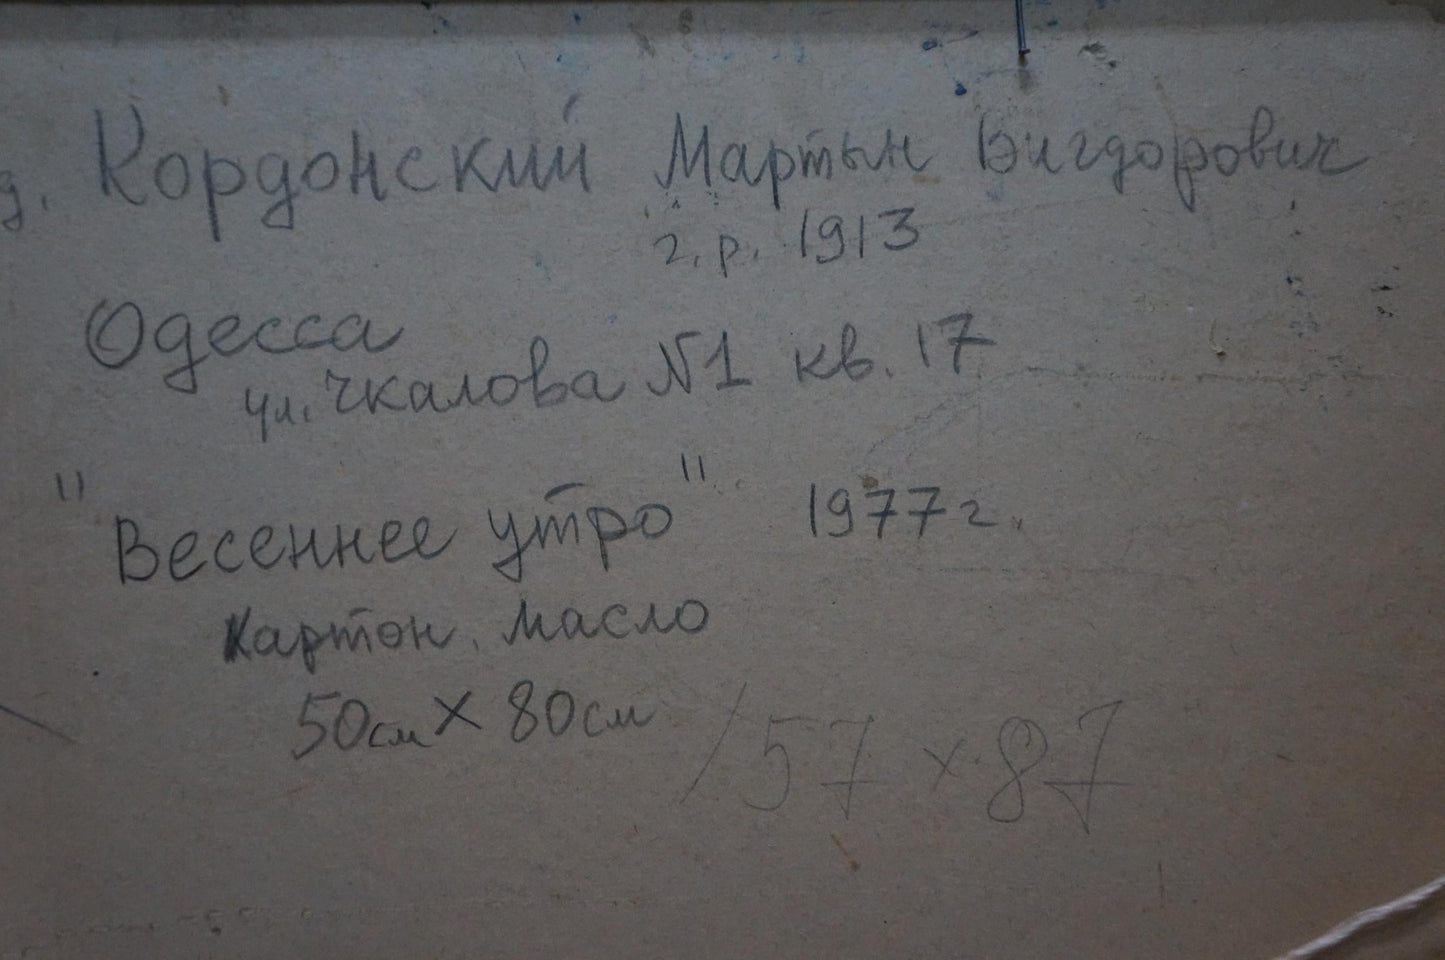 д. Кордонский Мартын Вигдорович
г.р. 1913
Одесса
ул. Чкалова №1 кв. 17
"Весеннее утро" 1977 г.
Картон, масло
50см X 80см / 57 x 87